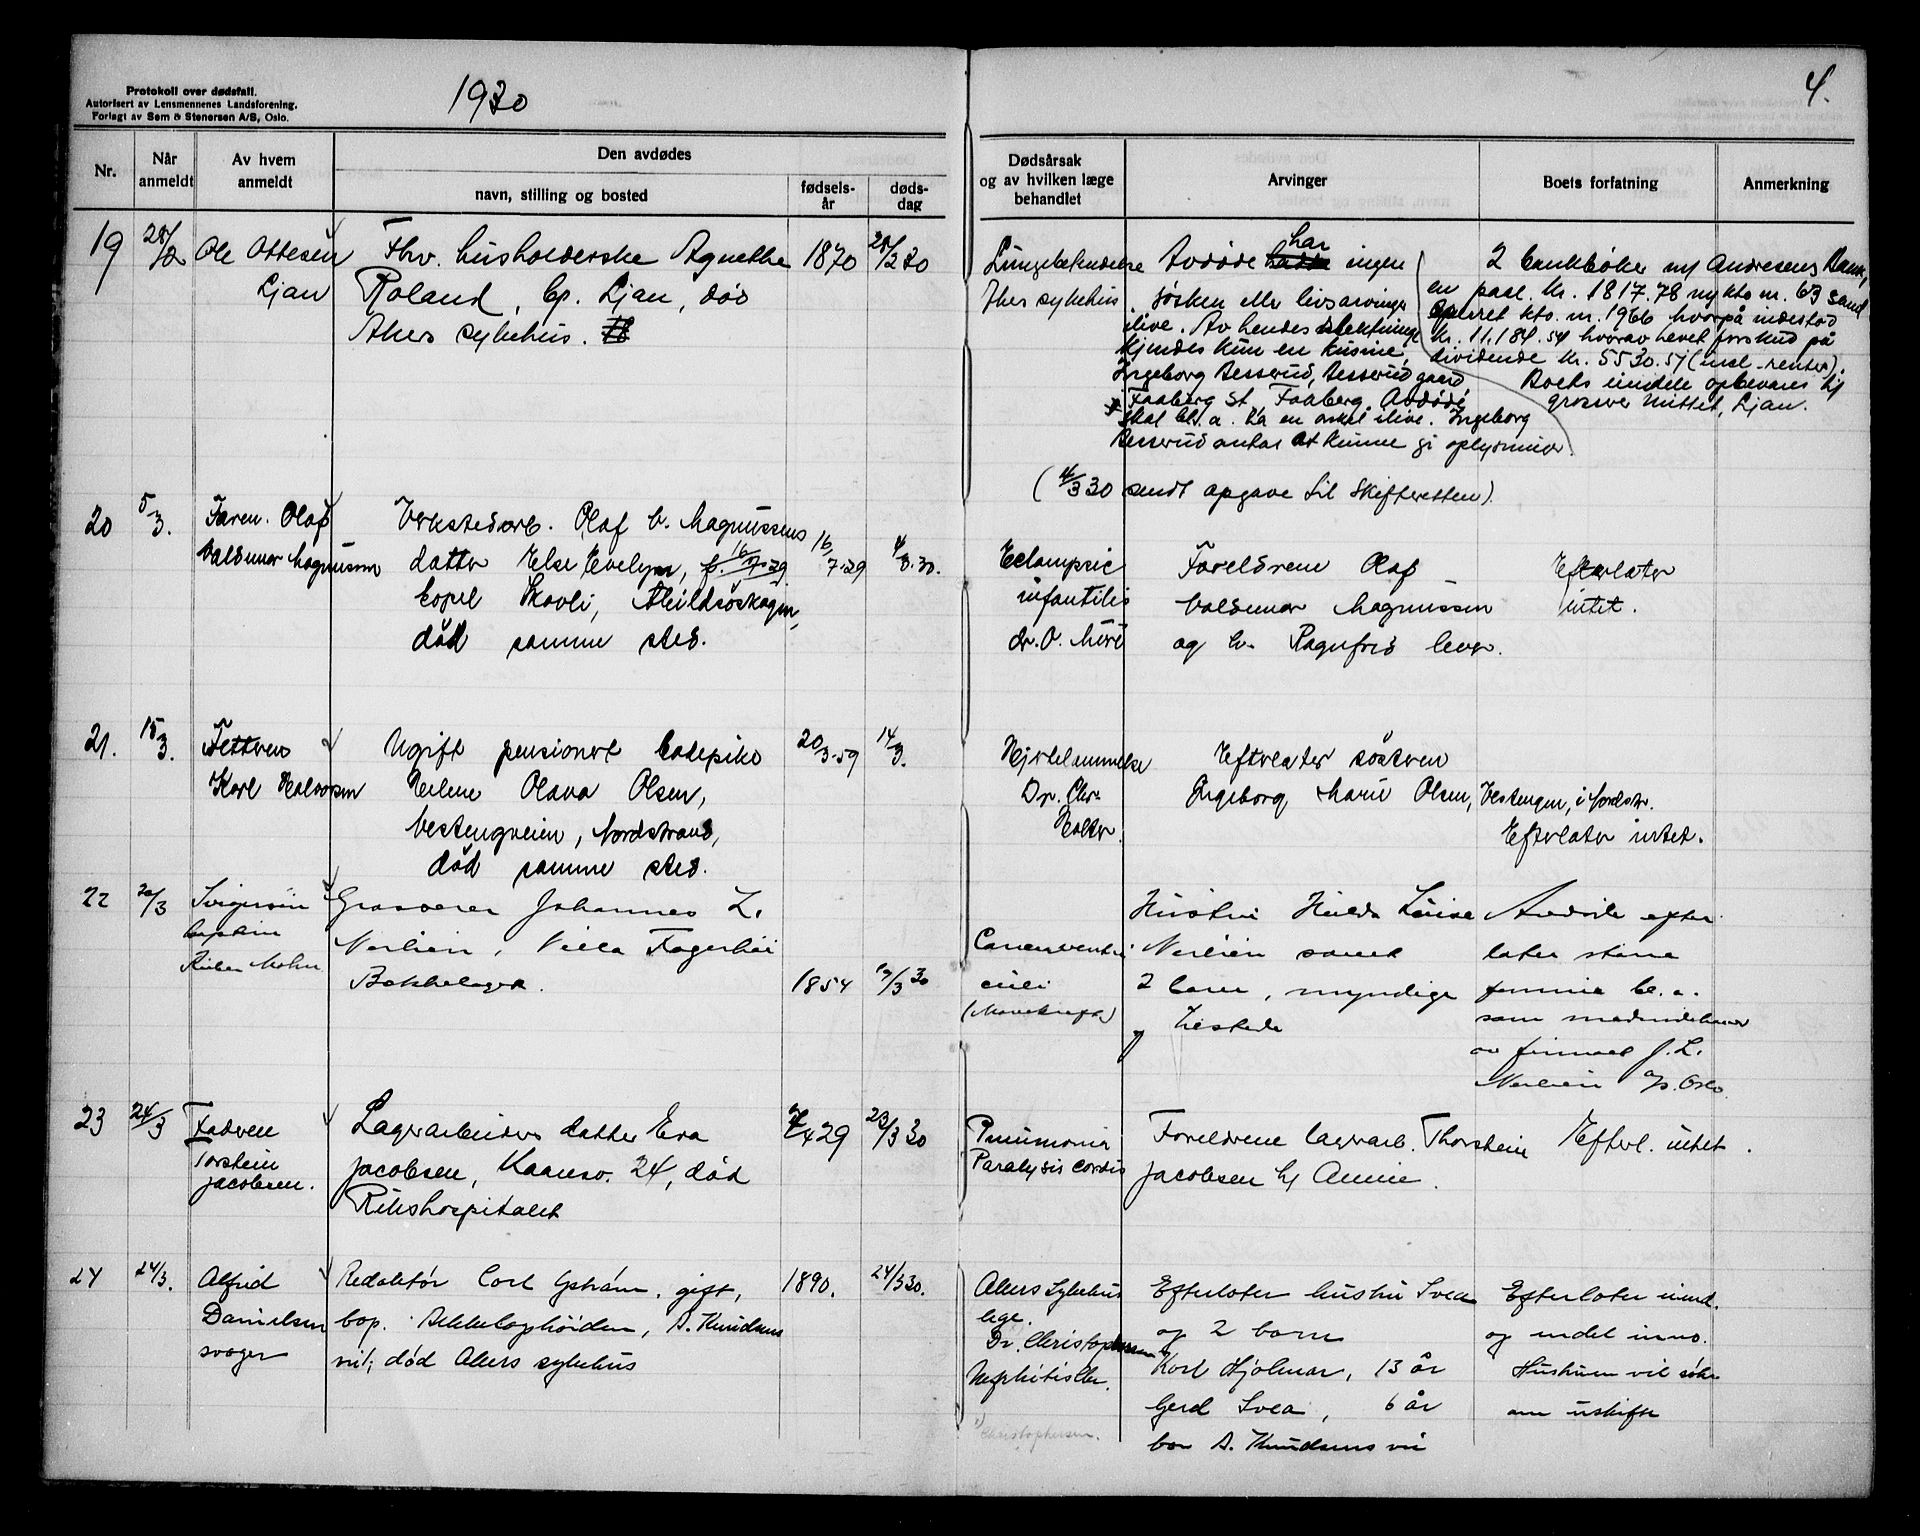 Protokoll over dødsfall.
Autorisert av Lensmennenes Landsforening.
Forlagt av Sem & Stenersen A/S, Oslo.
1930
4.
Nr.
Når
anmeldt
Av hvem
anmeldt
Den avdødes
navn, stilling og bosted
fødsels-
år
døds-
dag
Dødsårsak
og av hvilken læge
behandlet
Arvinger
Boets forfatning
Anmerkning
19
28/2
Ole Ottesen
Ljan
Fhv. husholderske Agnethe
Roland, bp. Ljan, død
Akers sykehus.
1870
28/2 30
Lungebetendelse
Akers sykehus
Avdøde har ingen
søsken eller livsarvinger
ilive. Av hendes slektninge
kjendes kun en kusine,
Ingeborg Besserud, Besserud gaard,
Faaberg St. Faaberg. Avdøde
skal bl. a. ha en onkel ilive. Ingeborg
Besserud antas at kunne gi oplysninger.
2 bankbøker ny Andresens Bank,
en paal. kr. 1817.78 ny kto nr. 63 samt
sperret kto. nr. 1966 hvorpå indestod
kr. 11.184.54 hvorav hevet forskud på
dividende kr. 5530.51 (incl. renter).
Boets eiendele opbevares hj
grosserer Mittet, Ljan.
(4/3 30 sendt opgave til Skifteretten).
20
5/3.
Faren. Olaf
Valdemar Magnussen
Verkstedarb. Olaf V. Magnussens
datter Else Evelyn, f. 16/7.29.
bopel Skovli, Ahildsøskogen,
død samme sted.
16/7.29
4/3.30.
Eclampsie
infantilis
dr. O. Mere
Foreldrene Olaf
Valdemar Magnussen
og h. Ragnfrid lever.
Efterlater
intet.
21.
15/3.
Fettren
Karl Halvorsen
Ugift pensionert badepike
Helene Olava Olsen,
Vestengveien, Nordstrand,
død samme sted.
20/3.59
14/3.
Hjertelammelse
Dr. Chr.
Holter.
Efterlater søsteren
Ingeborg Marie Olsen, Vestengen, i Nordstr.
Efterlater intet.
22
20/3
Svigersøn
Rieber Mohn
Grosserer Johannes L.
Nerlien, Villa Fagerhøi
Bekkelaget.
1854
19/3 30
Cancer ventri
culi
(Mavekreft)
Hustru Hulda Louise
Nerlien samt
2 barn, myndige
og tilstede
Avdøde efter
later større
formue bl. a.
som medindehaver
av firmaet J. L.
Nerlien A/S. Oslo.
23
24/3
Faderen
Torstein
Jacobsen.
Lagerarbeiders datter Eva
Jacobsen, Kansv. 24, død
Rikshospitalet
29
23/3 30
Pneumonia
Paralysis cordis
Foreldrene lagerarb. Thorstein
Jacobsen h/ Annie.
Efterl. intet.
24
24/3.
Alfrid
Danielsen
svoger
Redaktør Carl Gstrám, gift,
bop. Bekkelagshøiden, A. Knudsens
vei; død Akers sykehus
1890.
24/3 30.
Akers Sykehus
lege.
Dr. Christophersen
Christophersen.
Efterlater hustru Svea
og 2 barn
Karl Hjalmar, 13 år
Gerd Svea, 6 år
bor A. Knudsens vei
Efterlater uind.
og endel inno.
Hustruen vil søke
om uskifte